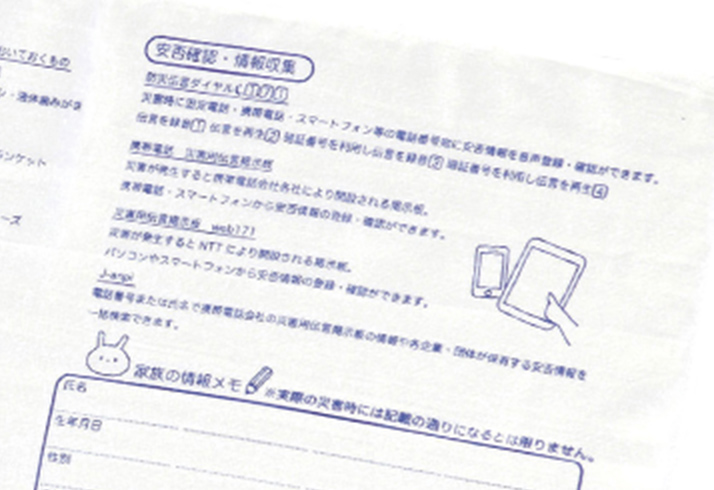 いておくもの
ン・液体歯みがき
ランケット
ーズ
安否確認・情報収集
防災伝言ダイヤル 171
災害時に固定電話・携帯電話・スマートフォン等の電話番号宛に安否情報を音声登録・確認ができます。
伝言を録音1 伝言を再生2 暗証番号を利用し伝言を録音3 暗証番号を利用し伝言を再生4
携帯電話 災害用伝言掲示板
災害が発生すると携帯電話会社各社により開設される掲示板。
携帯電話・スマートフォンから安否情報の登録・確認ができます。
災害用伝言掲示板 web171
災害が発生するとNTTにより開設される掲示板。
パソコンやスマートフォンから安否情報の登録・確認ができます。
J-anpi
電話番号または氏名で携帯電話会社の災害用伝言掲示板の情報や各企業・団体が保有する安否情報を
一括検索できます。
家族の情報メモ ※実際の災害時には記載の通りになるとは限りません。
氏名
生年月日
性別